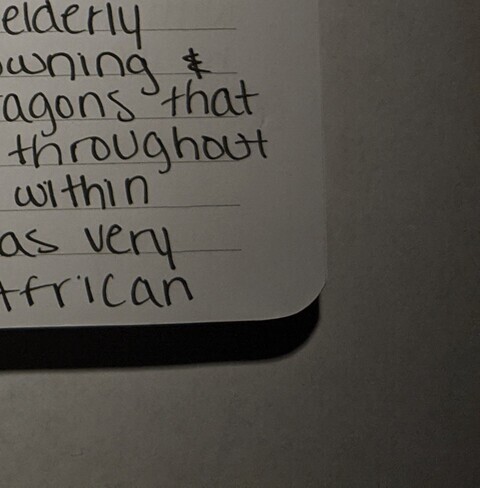 elderly
wning &
agons that
throughout
within
as very
African